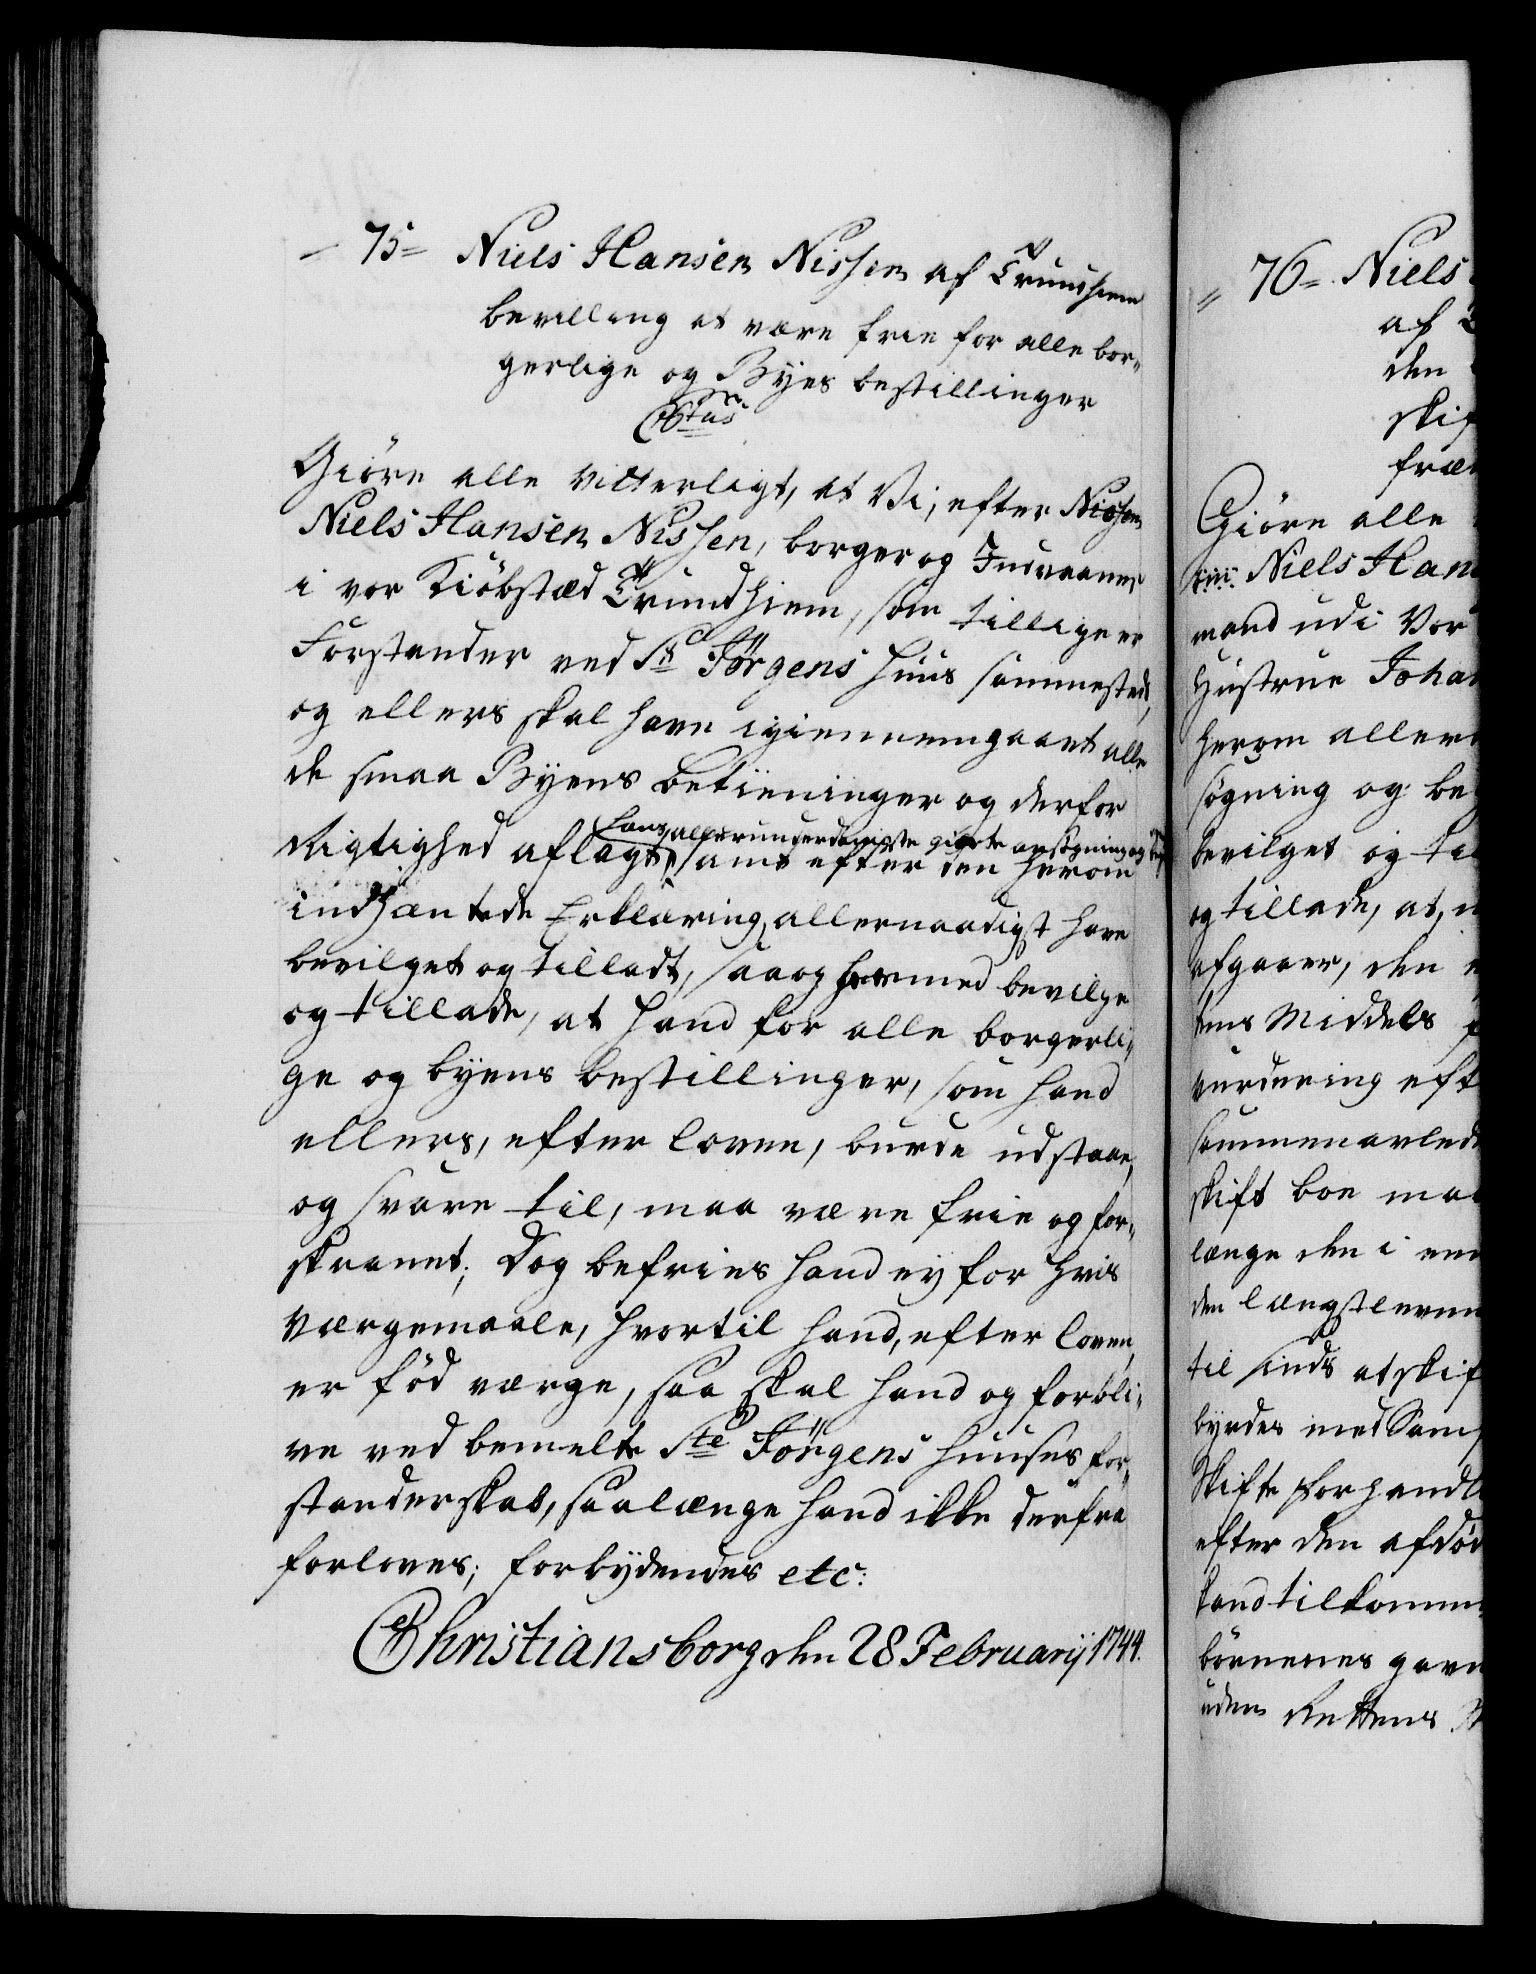 - 75 = Niels Hansen Nissen af Trundhiem
bevilling at være frie for alle bor-
gerlige og Byes bestillinger
Giöre alle vitterligt, at Vi, efter Nissen
Niels Hansen Nissen, borger og Indvaaner
i vor Kiöbstæd Trundhiem, som tillige er
Forstander ved St Jörgens Huus sammesteds,
og ellers skal have igiennemgaaet alle
de smaa Byens betieninger og derfor
hans allerunderdanigste giorte ansøgning og
Rigtighed aflagt, samt efter den herom
indhæntede Erklæring, allernaadigst have
bevilget og tilladt, saa og hermed bevilge
og tillade, at hand for alle borgerli-
ge og byens bestillinger, som hand
ellers, efter loven, burde udstaae,
og svare til, maa være frie og for-
skaanet; Dog befries hand ey for hvis
Værgemaale, hvortil hand, efter loven,
er föd værge, saa skal hand og forbli-
ve ved bemelte Ste Jörgens Huuses for-
standerskab, saalænge hand ikke derfra
forloves; forbydendes etc:
Christiansborg den 28 Februarij 1744.
76 = Niels
af
den
skif
Giöre alle
Niels Han
mand udi Vor
Hustrue Joha
herom aller
søgning og be
bevilget og til
og tillade, at, n
afgaaer, den
tens Middels
vurdering eft
sammenavlede
skift boe maa
længe den i en
den længstleven
til sinds at skif
byrdes med Sam
Skifte forhandl
efter den afdød
kand tilkomm
börnenes gavn
uden Rettens